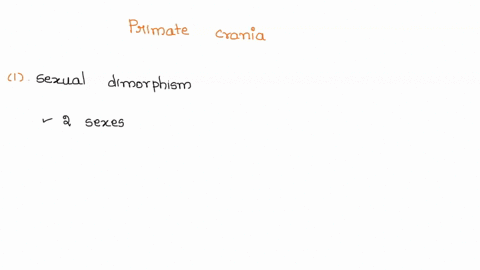 Primate crania
(1). sexual dimorphism
✓ 2 sexes